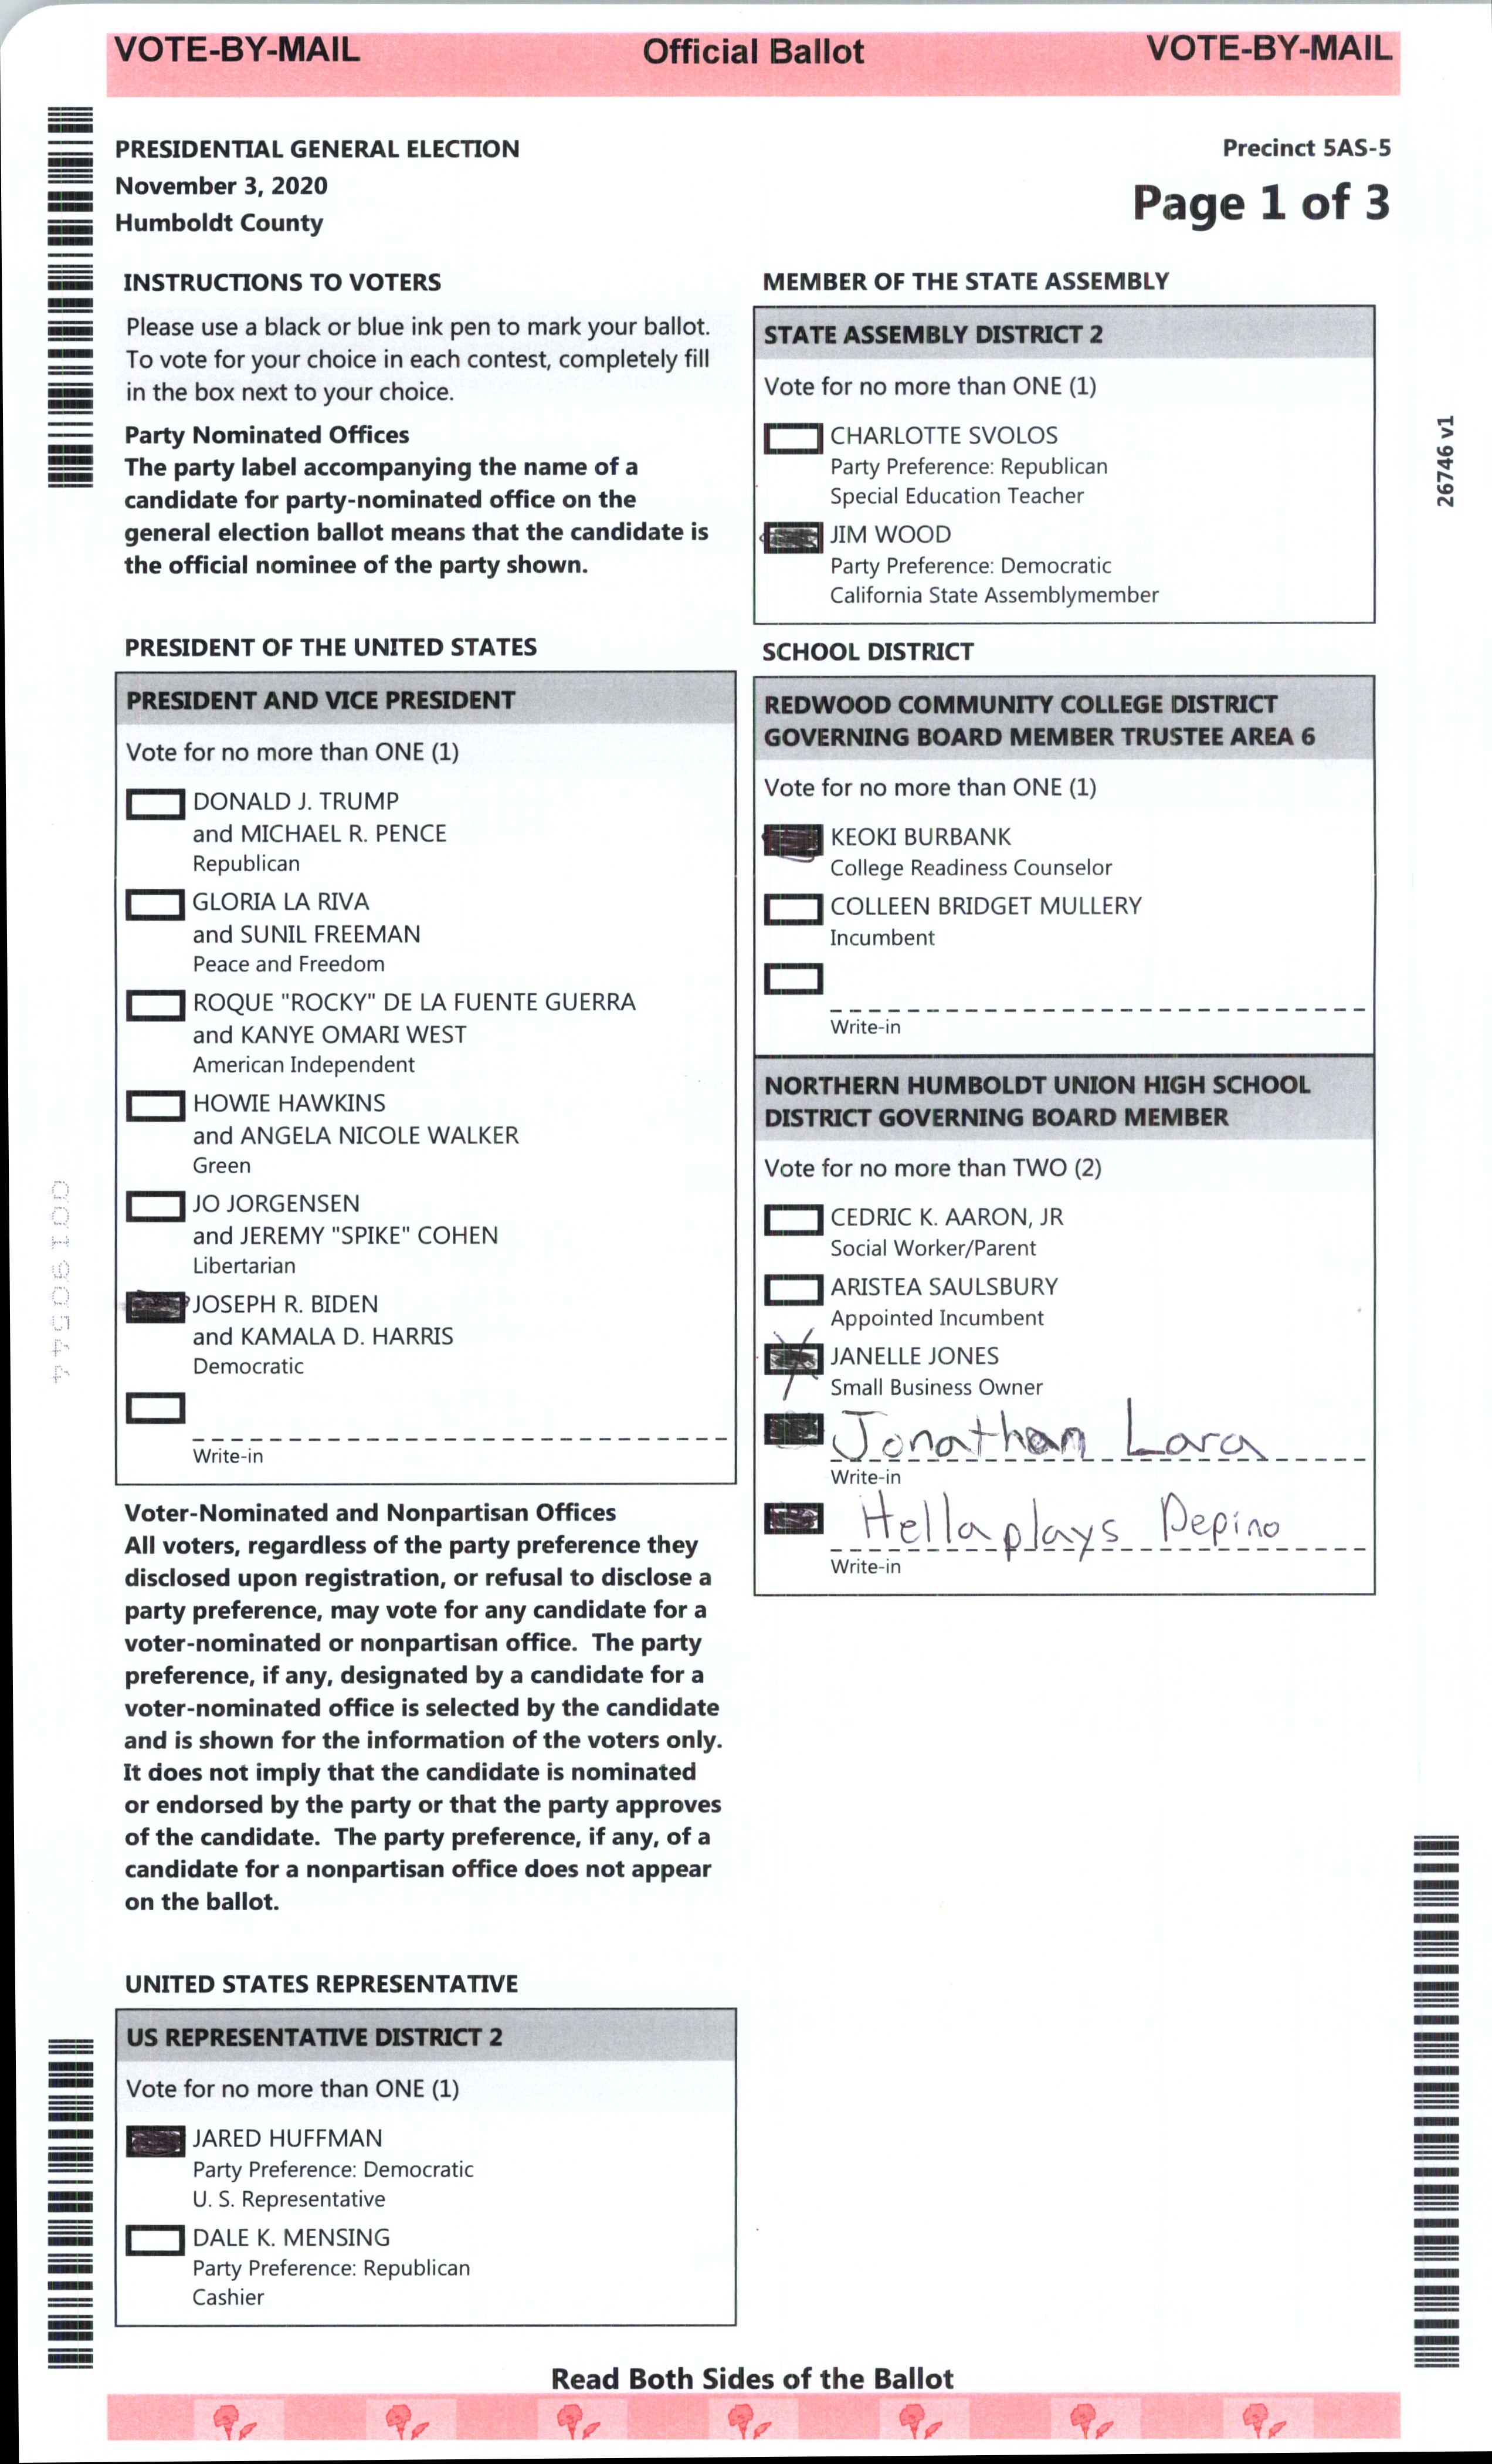 VOTE-BY-MAIL Official Ballot VOTE-BY-MAIL
PRESIDENTIAL GENERAL ELECTION
November 3, 2020
Humboldt County
Precinct 5AS-5
Page 1 of 3
INSTRUCTIONS TO VOTERS
Please use a black or blue ink pen to mark your ballot.
To vote for your choice in each contest, completely fill
in the box next to your choice.
Party Nominated Offices
The party label accompanying the name of a
candidate for party-nominated office on the
general election ballot means that the candidate is
the official nominee of the party shown.
PRESIDENT OF THE UNITED STATES
PRESIDENT AND VICE PRESIDENT
Vote for no more than ONE (1)
DONALD J. TRUMP
and MICHAEL R. PENCE
Republican
GLORIA LA RIVA
and SUNIL FREEMAN
Peace and Freedom
ROQUE "ROCKY" DE LA FUENTE GUERRA
and KANYE OMARI WEST
American Independent
HOWIE HAWKINS
and ANGELA NICOLE WALKER
Green
JO JORGENSEN
and JEREMY "SPIKE" COHEN
Libertarian
JOSEPH R. BIDEN
and KAMALA D. HARRIS
Democratic
Write-in
Voter-Nominated and Nonpartisan Offices
All voters, regardless of the party preference they
disclosed upon registration, or refusal to disclose a
party preference, may vote for any candidate for a
voter-nominated or nonpartisan office. The party
preference, if any, designated by a candidate for a
voter-nominated office is selected by the candidate
and is shown for the information of the voters only.
It does not imply that the candidate is nominated
or endorsed by the party or that the party approves
of the candidate. The party preference, if any, of a
candidate for a nonpartisan office does not appear
on the ballot.
UNITED STATES REPRESENTATIVE
US REPRESENTATIVE DISTRICT 2
Vote for no more than ONE (1)
JARED HUFFMAN
Party Preference: Democratic
U. S. Representative
DALE K. MENSING
Party Preference: Republican
Cashier
MEMBER OF THE STATE ASSEMBLY
STATE ASSEMBLY DISTRICT 2
Vote for no more than ONE (1)
CHARLOTTE SVOLOS
Party Preference: Republican
Special Education Teacher
JIM WOOD
Party Preference: Democratic
California State Assemblymember
SCHOOL DISTRICT
REDWOOD COMMUNITY COLLEGE DISTRICT
GOVERNING BOARD MEMBER TRUSTEE AREA 6
Vote for no more than ONE (1)
KEOKI BURBANK
College Readiness Counselor
COLLEEN BRIDGET MULLERY
Incumbent
Write-in
NORTHERN HUMBOLDT UNION HIGH SCHOOL
DISTRICT GOVERNING BOARD MEMBER
Vote for no more than TWO (2)
CEDRIC K. AARON, JR
Social Worker/Parent
ARISTEA SAULSBURY
Appointed Incumbent
JANELLE JONES
Small Business Owner
Jonathan Lara
Write-in
Hellaplays Depino
Write-in
26746 v1
00190544
Read Both Sides of the Ballot